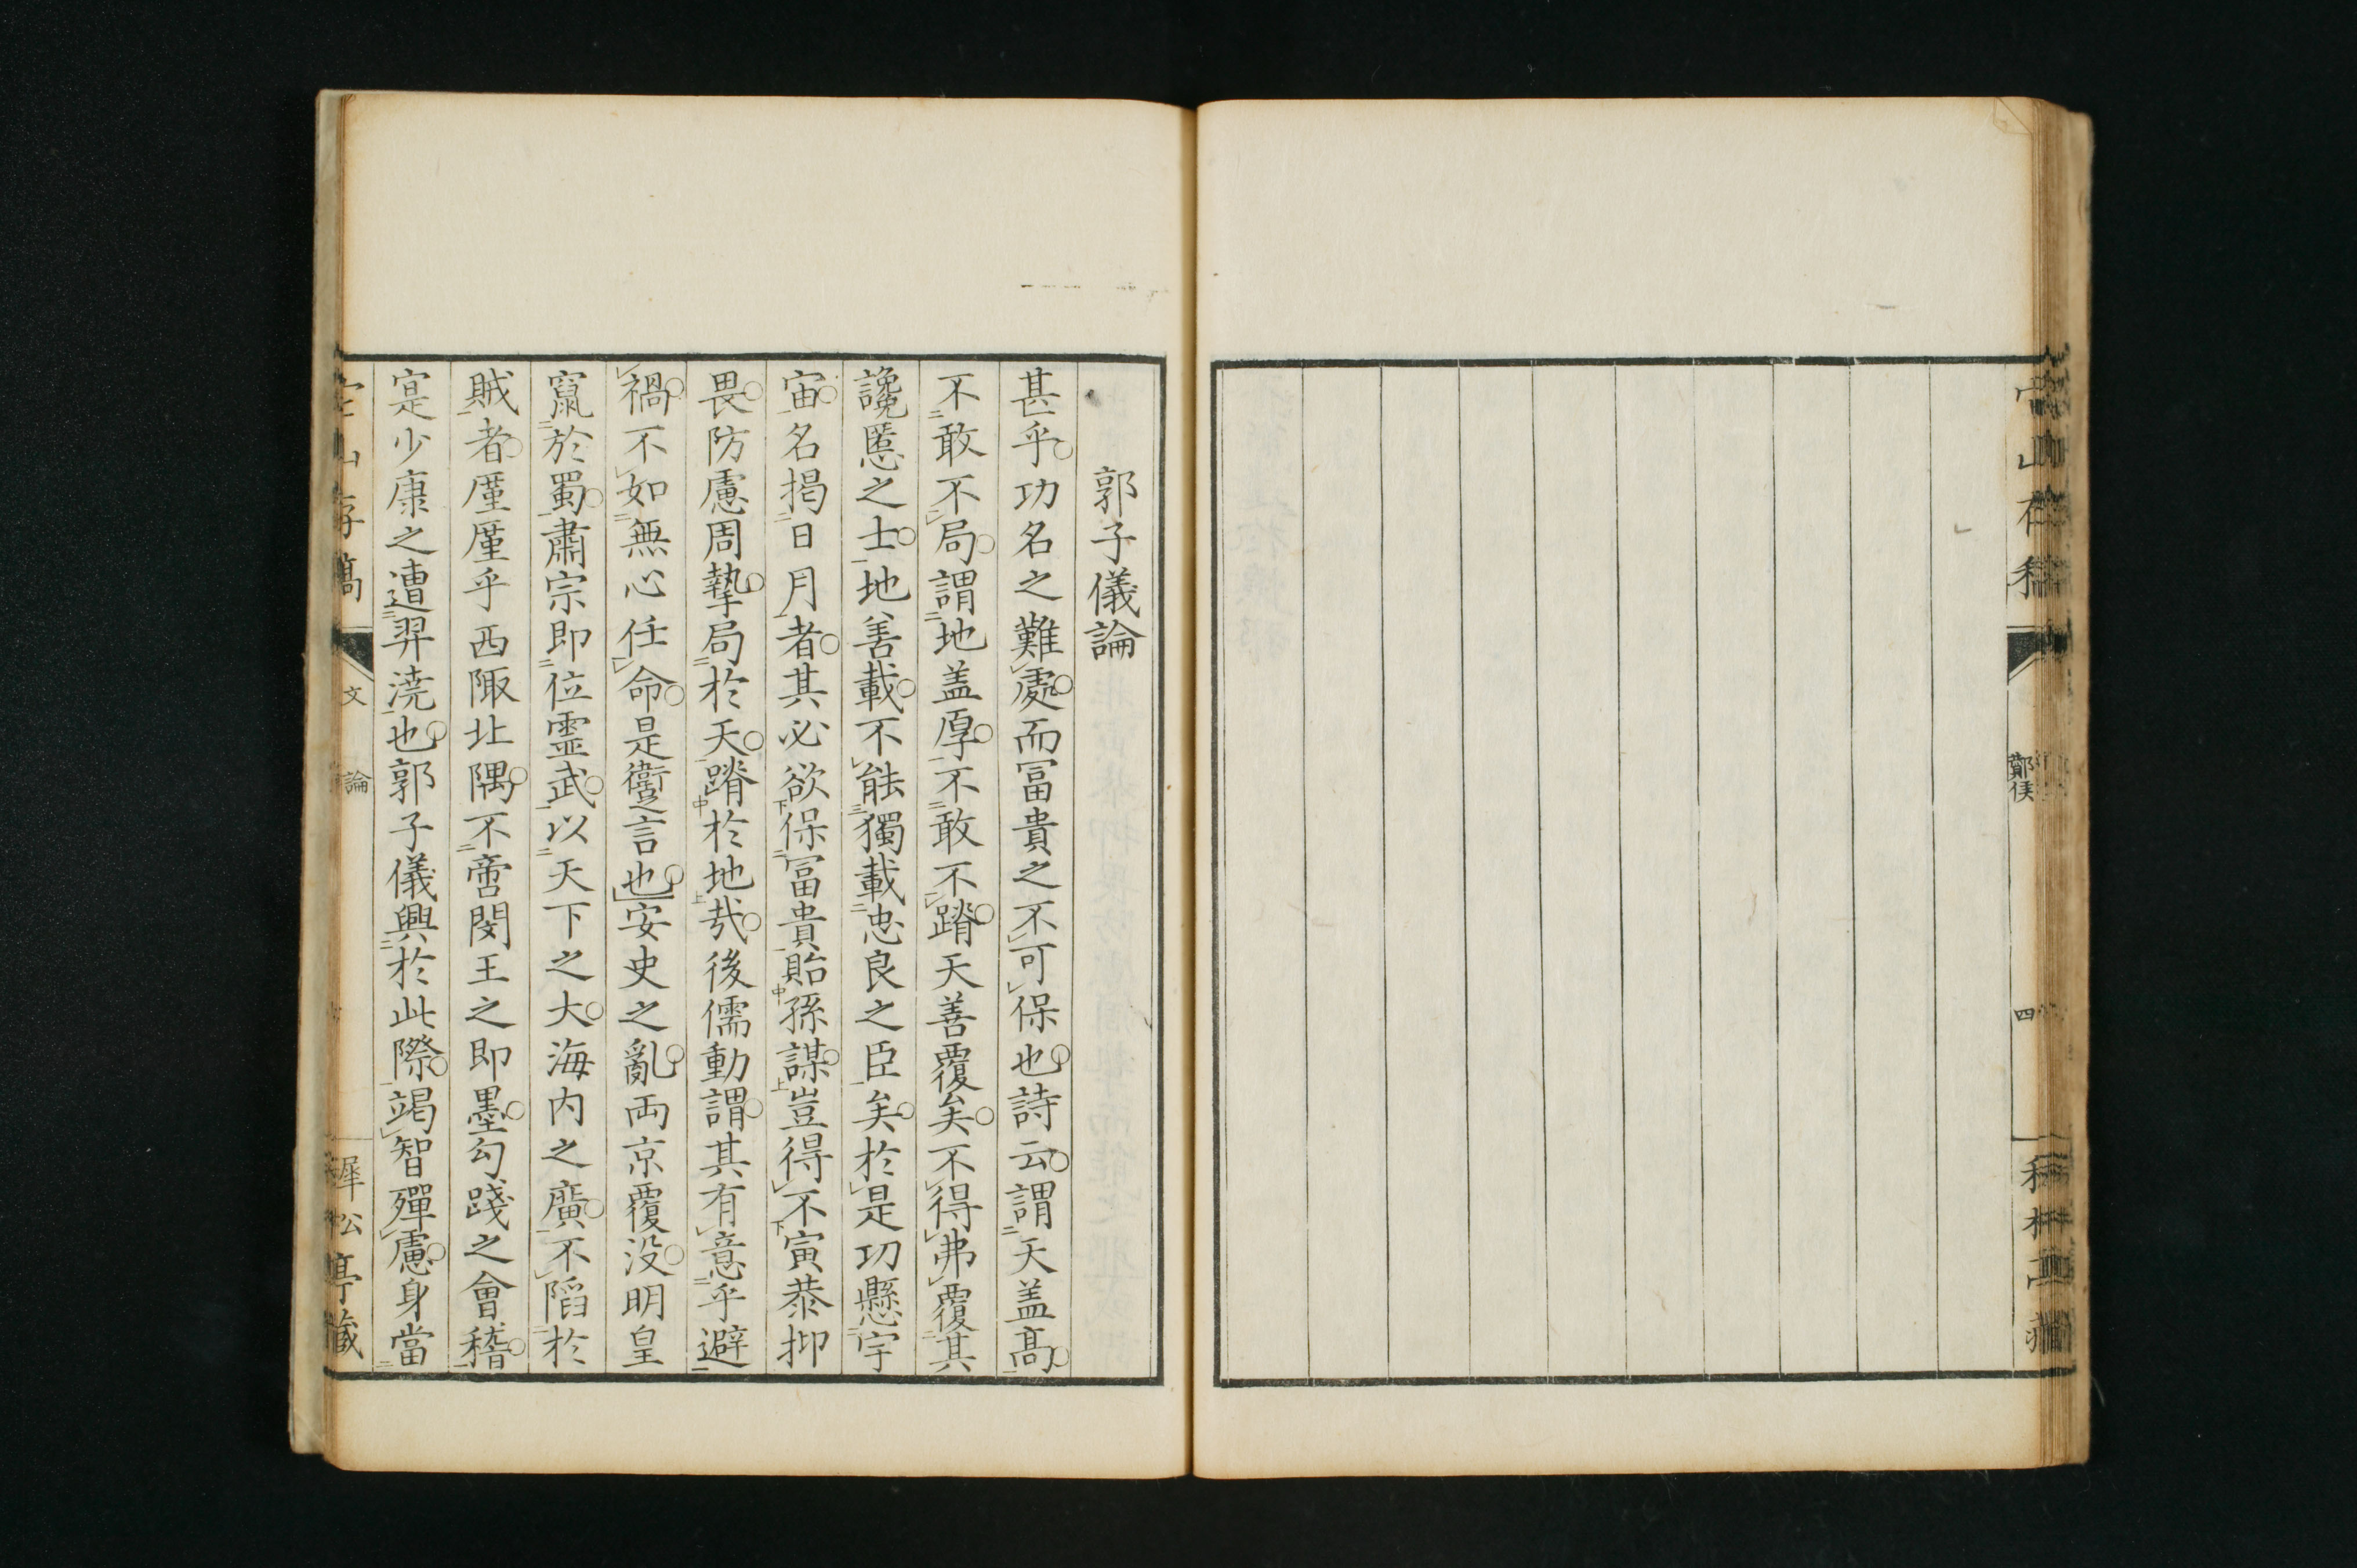 鄭侯
四
郭子儀論
甚乎功名之難處而冨貴之不可保也詩云謂天盖髙
不敢不局謂地盖厚不敢不蹐天善覆矣不得弗覆其
讒慝之士地善載不能獨載忠良之臣矣於是功懸宇
宙名揭日月者其必欲保冨貴貽孫謀豈得不寅恭抑
畏防慮周摯局於天蹐於地㢤後儒動謂其有意乎避
禍不如無心任命是衛之言也安史之亂両京覆没明皇
竄於蜀肅宗即位霊武以天下之大海内之廣不䧟於
賊者厪厪乎西陬北隅不啻閔王之即墨勾踐之會稽
寔少康之遭羿澆也郭子儀興於此際竭智殫慮身當
文
論
犀松亭蔵